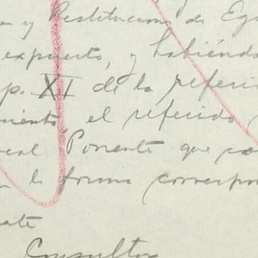 y Restitucion de
expuesto, y habiéndo
p. XI de la referi
miento el referido
Ponente que
la forma correspon
Consultor